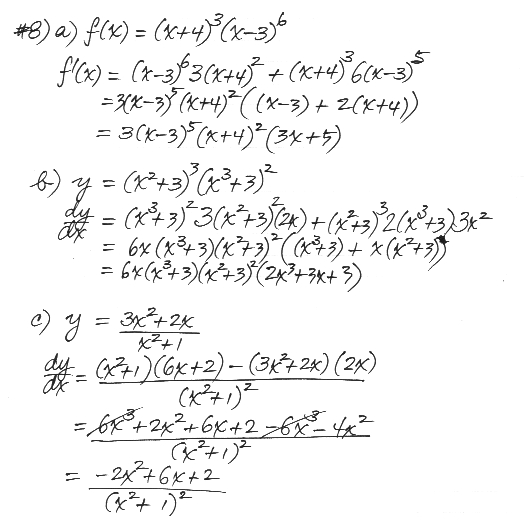 #8) a) f(x) = (x+4)³(x-3)⁶
f'(x) = (x-3)⁶3(x+4)² + (x+4)³6(x-3)⁵
= 3(x-3)⁵(x+4)²((x-3) + 2(x+4))
= 3(x-3)⁵(x+4)²(3x+5)
b) y = (x²+3)³(x³+3)²
dy/dx = (x³+3)²3(x²+3)²(2x) + (x²+3)³2(x³+3)3x²
= 6x(x³+3)(x²+3)²((x³+3) + x(x²+3))
= 6x(x³+3)(x²+3)²(2x³+3x+3)
c) y = (3x²+2x)/(x²+1)
dy/dx = ((x²+1)(6x+2) - (3x²+2x)(2x))/(x²+1)²
= (6x³+2x²+6x+2-6x³-4x²)/(x²+1)²
= (-2x²+6x+2)/(x²+1)²